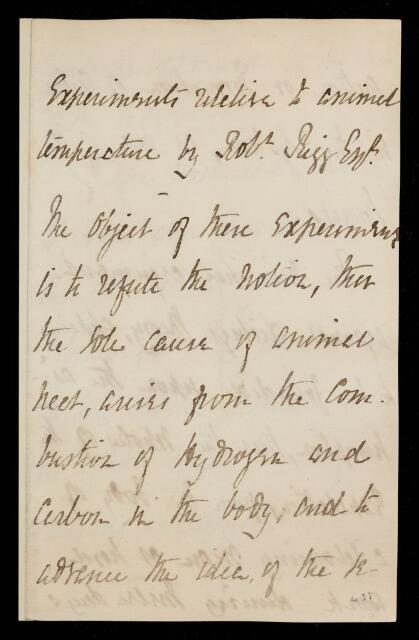 Experiments relative to animal
temperature by Robt. Rigg Esqr.
The Object of these Experiments
is to refute the Notion, that
the sole cause of animal
heat, arises from the Com-
bustion of Hydrogen and
Carbon in the body; and to
advance the idea, of the se-